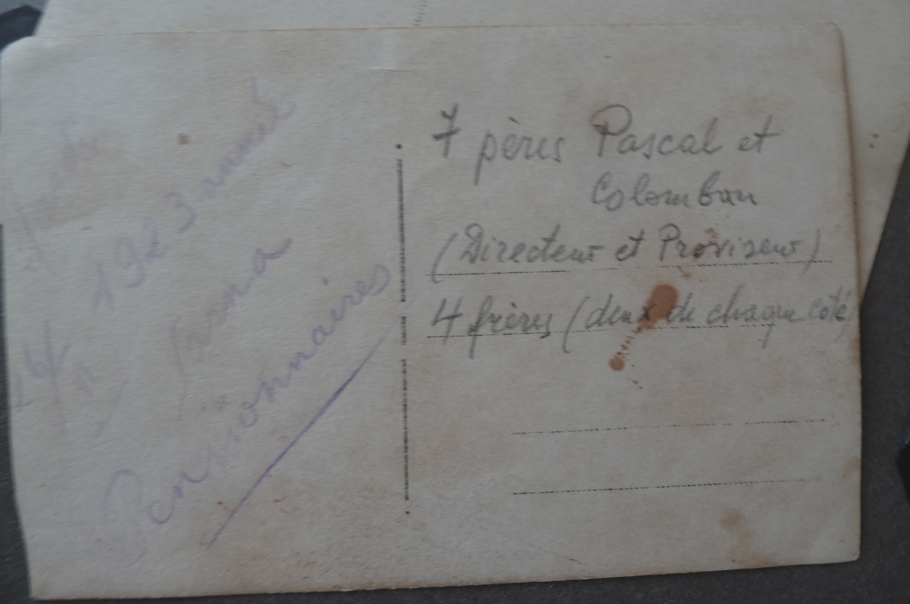 1923 année
Pensionnaires
7 pères Pascal et
Colomban
(Directeur et Proviseur)
4 frères (deux de chaque côté